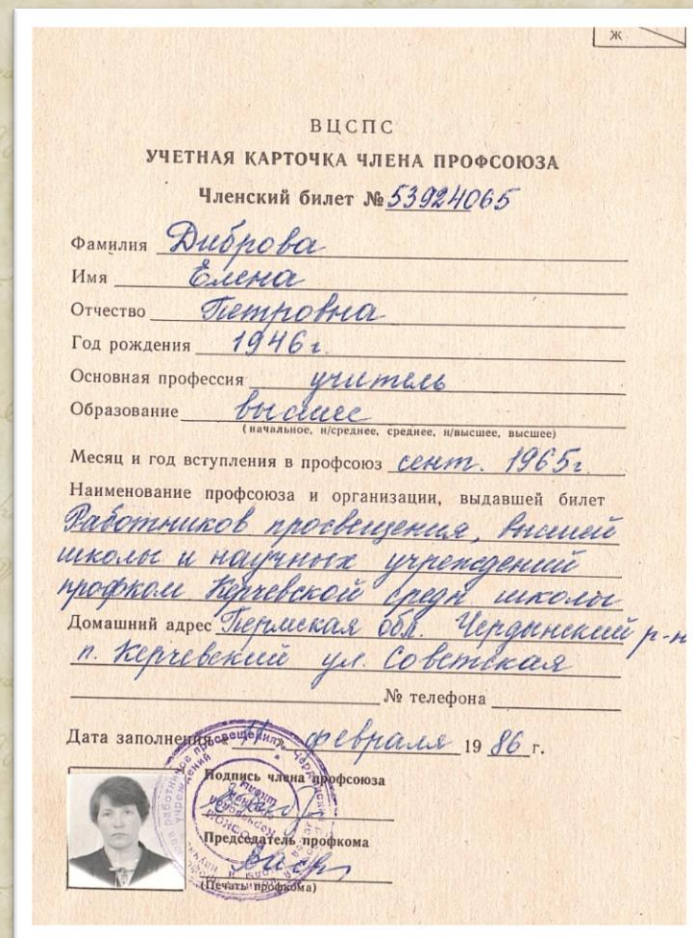 Ж
ВЦСПС
УЧЕТНАЯ КАРТОЧКА ЧЛЕНА ПРОФСОЮЗА
Членский билет № 53924065
Фамилия Диброва
Имя Елена
Отчество Петровна
Год рождения 1946 г.
Основная профессия учитель
Образование высшее
(начальное, н/среднее, среднее, н/высшее, высшее)
Месяц и год вступления в профсоюз сент. 1965г.
Наименование профсоюза и организации, выдавшей билет
Работников просвещения, высшей
школы и научных учреждений
профком Керчевской средн школы
Домашний адрес Пермская обл. Чердынский р-н
п. Керчевский ул. Советская
№ телефона
Дата заполнения 11 февраля 1986 г.
Подпись члена профсоюза
Председатель профкома
(Печать профкома)